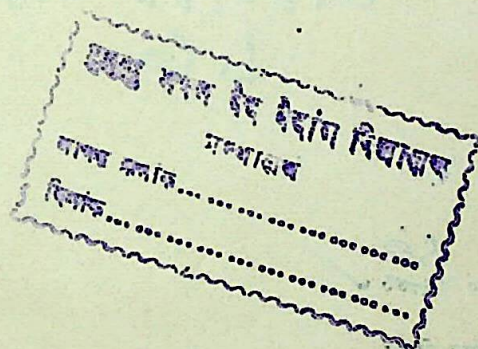 मुमुक्षु भवन वेद वेदांग विद्यालय
ग्रन्थालय
आगत क्रमांक..............................
दिनांक..............................